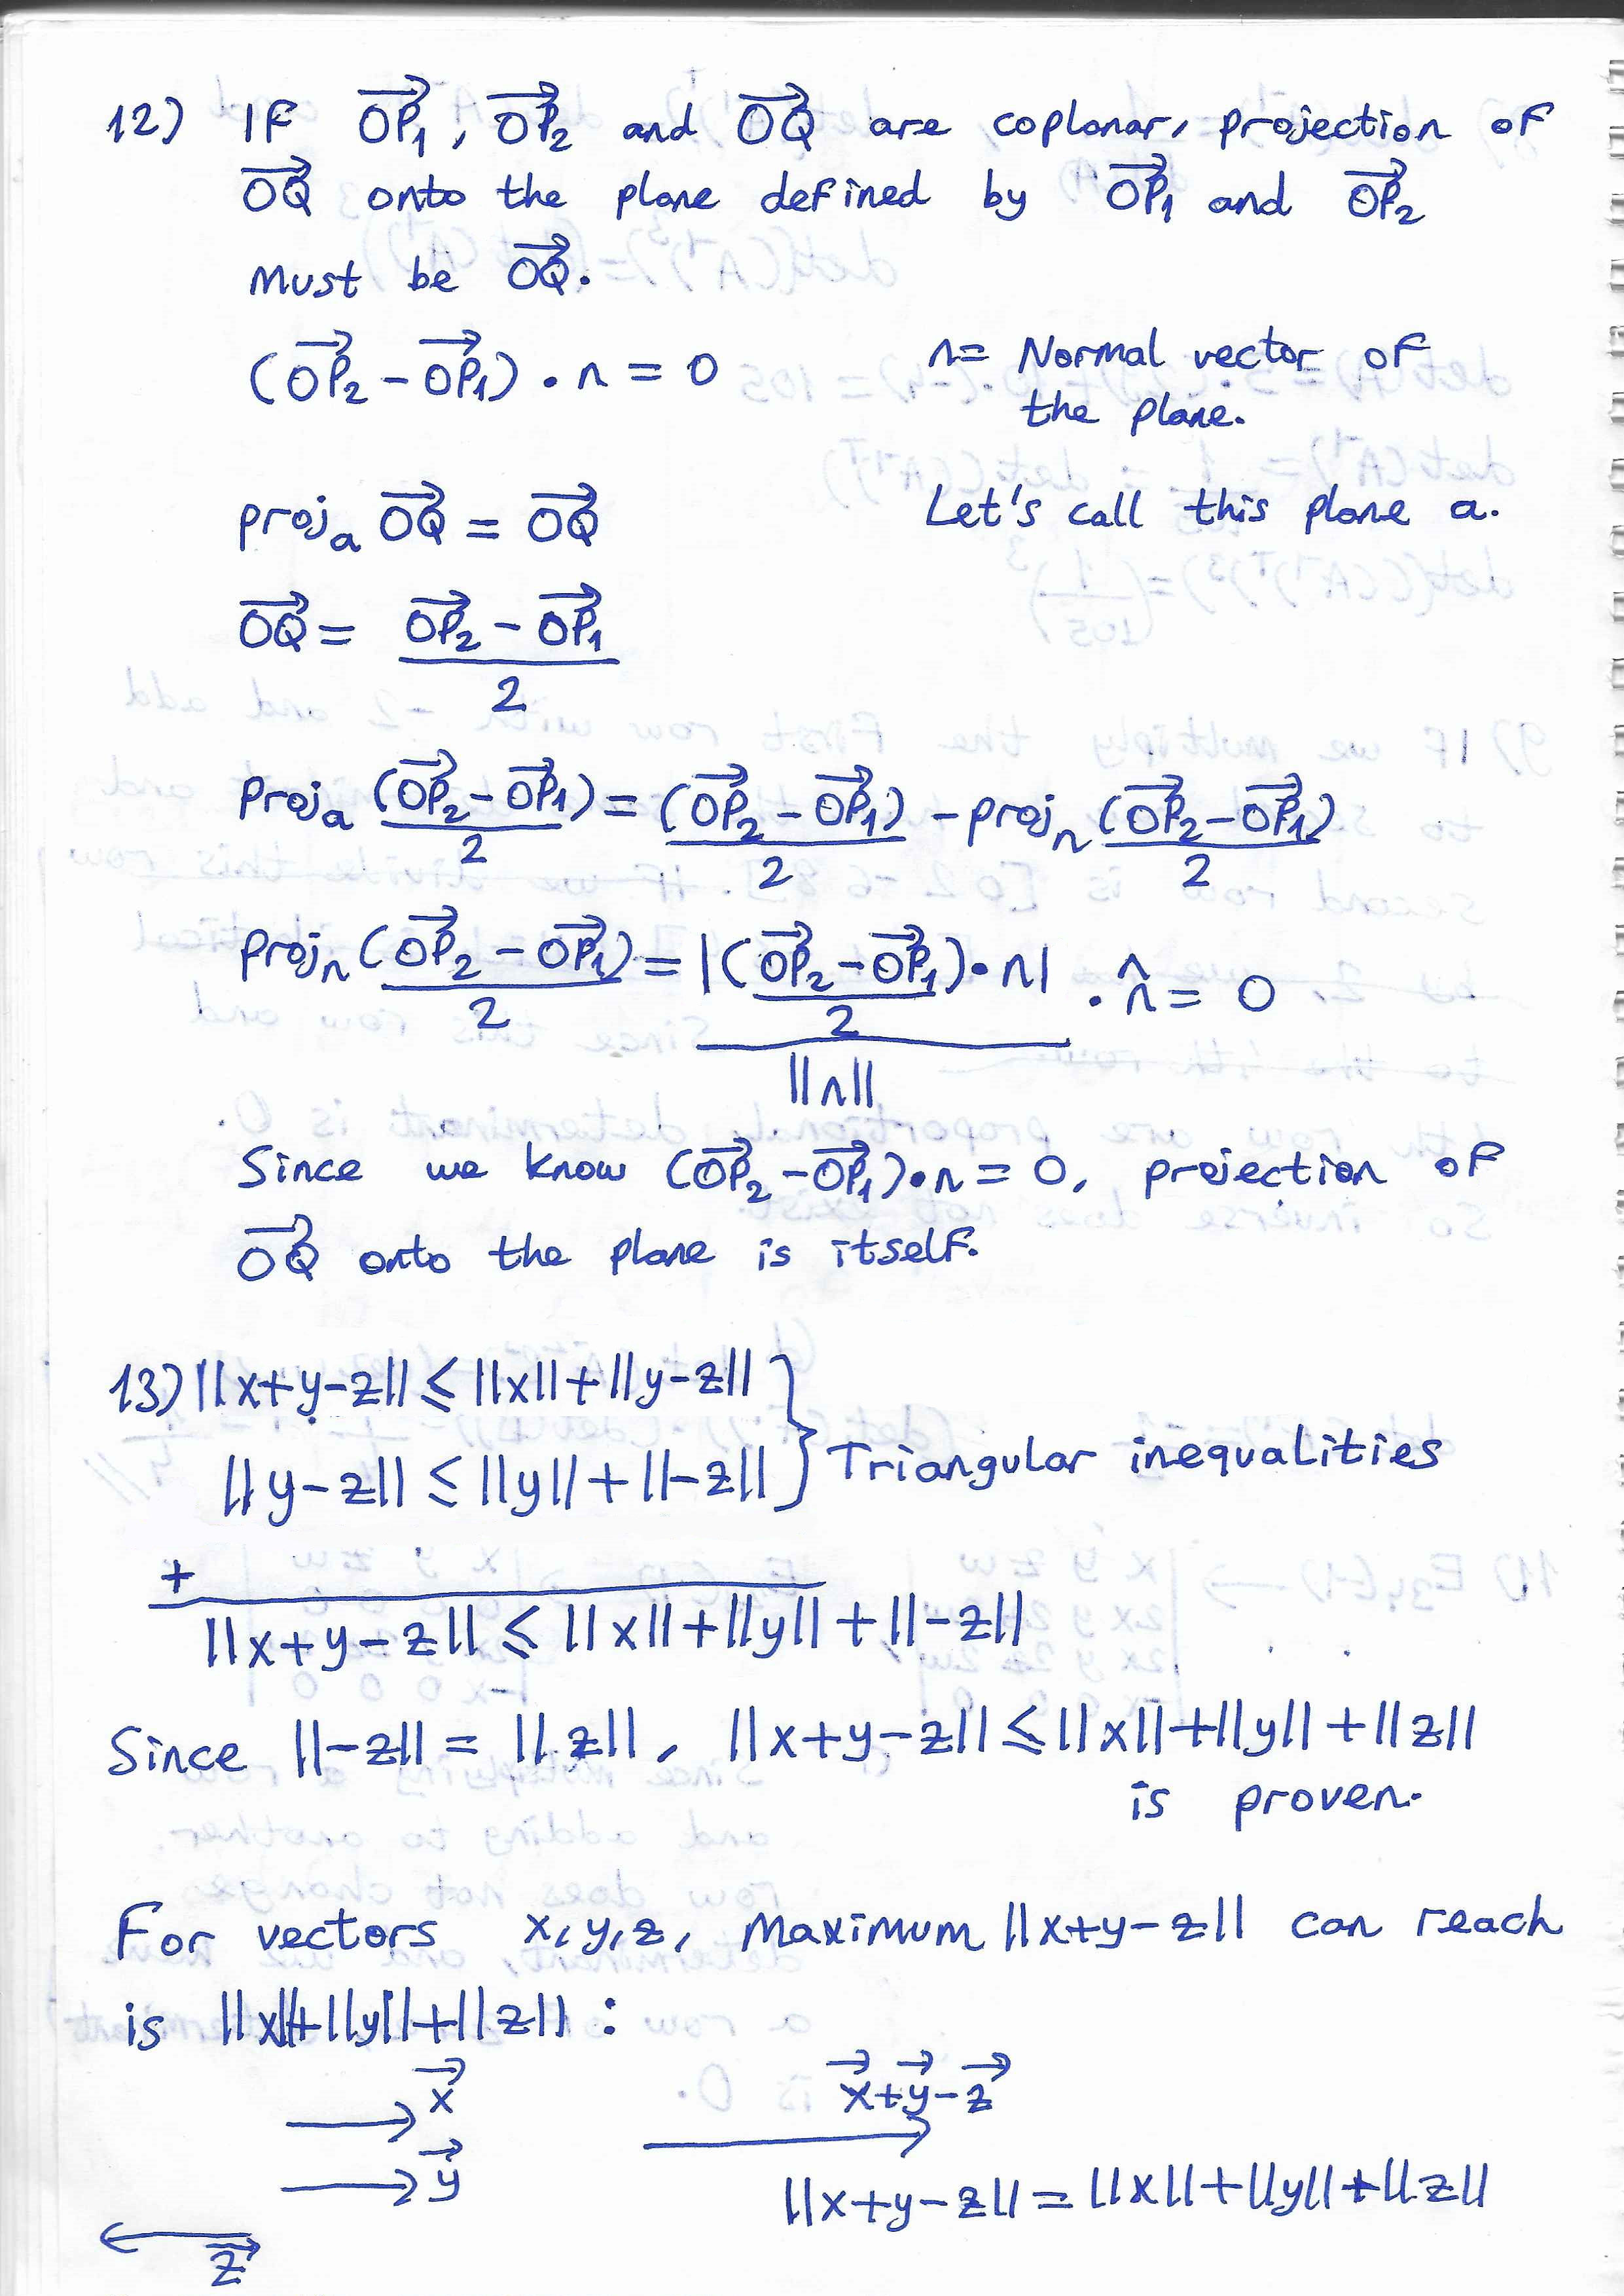 12) IF OP₁, OP₂ and OQ are coplanar, projection of
OQ onto the plane defined by OP₁ and OP₂
Must be OQ.
(OP₂ - OP₁) • n = 0 n = Normal vector of
the plane.
proj_a OQ = OQ Let's call this plane a.
OQ = (OP₂ - OP₁)/2
Proj_a (OP₂ - OP₁)/2 = (OP₂ - OP₁)/2 - proj_n (OP₂ - OP₁)/2
Proj_n (OP₂ - OP₁)/2 = |(OP₂ - OP₁)/2 • n| / ||n|| . n̂ = 0
Since we know (OP₂ - OP₁)•n = 0, projection of
OQ onto the plane is itself.
13) ||x+y-z|| ≤ ||x|| + ||y-z||
||y-z|| ≤ ||y|| + ||-z|| } Triangular inequalities
+
||x+y-z|| ≤ ||x|| + ||y|| + ||-z||
Since ||-z|| = ||z||, ||x+y-z|| ≤ ||x|| + ||y|| + ||z||
is proven.
For vectors x,y,z, Maximum ||x+y-z|| can reach
is ||x||+||y||+||z|| :
x x+y-z
y
||x+y-z|| = ||x|| + ||y|| + ||z||
z